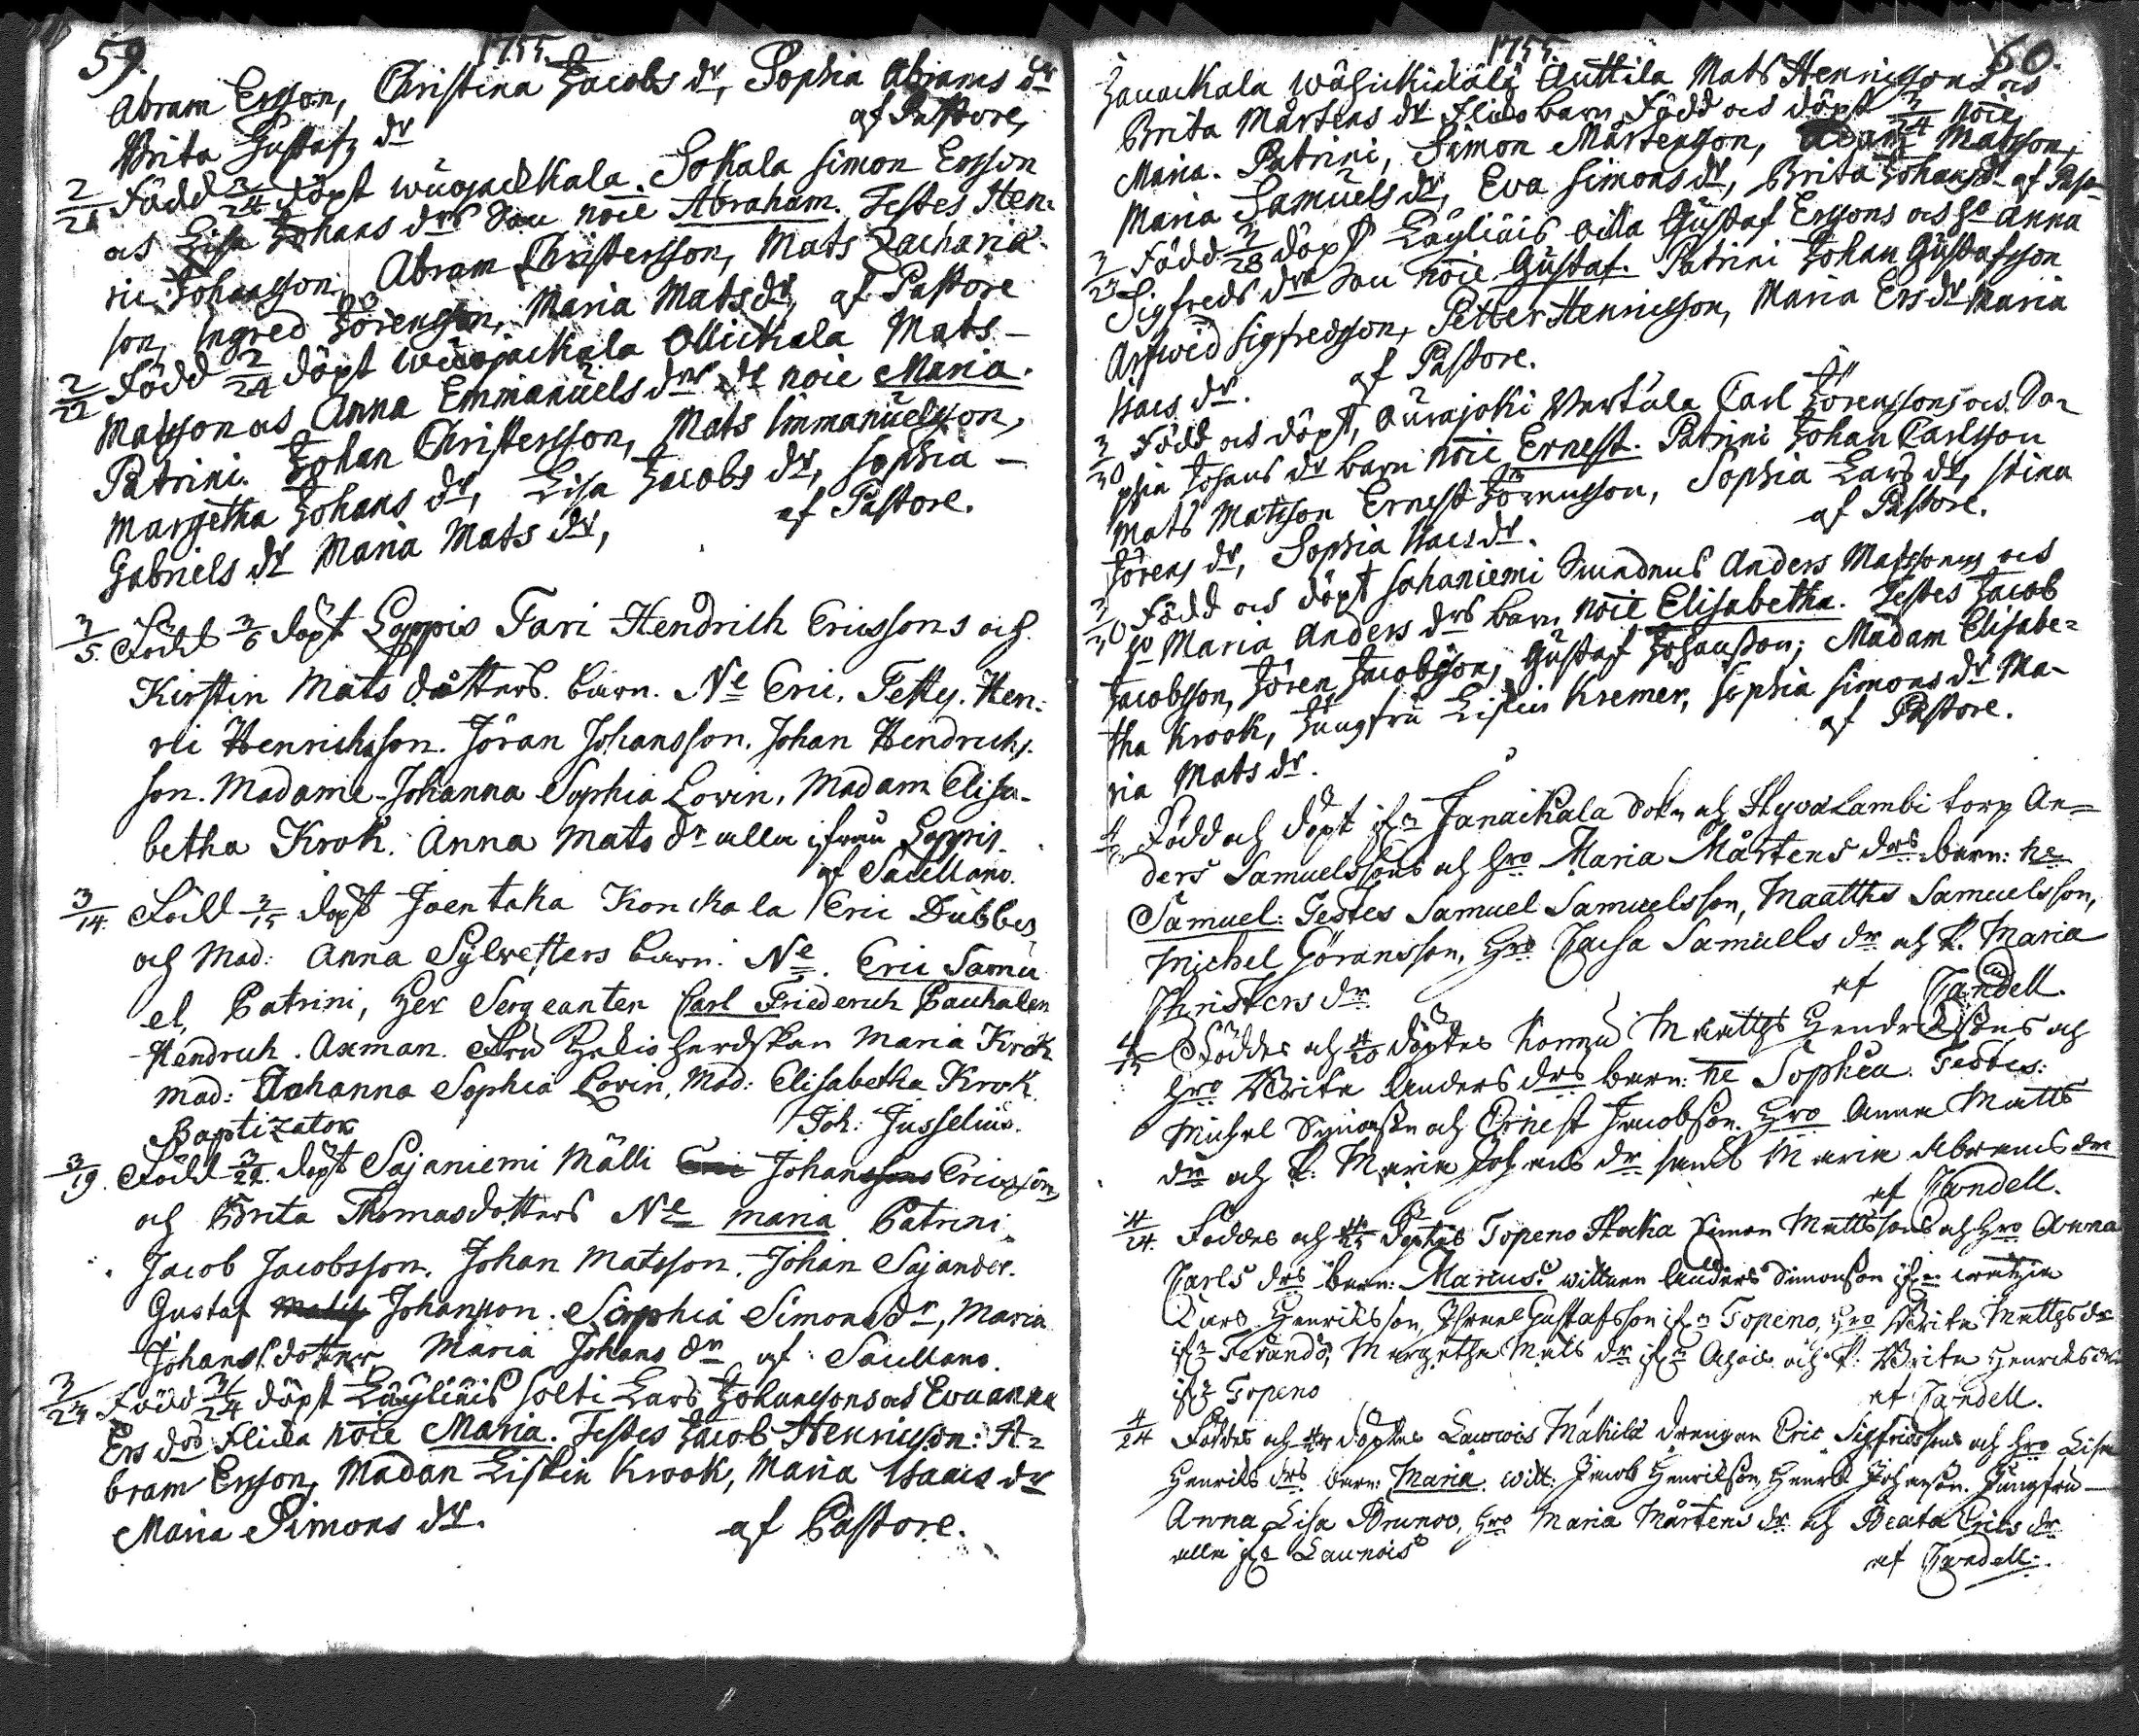 59.
1755.
Abram Ersson, Christina Jacobs dr, Sophia Abrams dr
Brita Gustafs dr af Pastore,
2/21 Född 2/24 döpt wuojackkala Sokala Simon Ersson
as Lisa Johans drs Son noie Abraham. Testes Hen-
ric Johansson, Abram Christersson, Mats Zacharia-
son, Ingred Jörensson, Maria Mats dr, af Pastore
2/22 Född 2/24 döpt wuojackkala Ollickala Mats
Matsson as Anna Emmanuels drs dr noie Maria.
Patrini. Johan Christersson, Mats Immanuelsson,
Margetha Johans dr, Lisa Jacobs dr, Sophia
Gabriels dr Maria Mats dr, af Pastore.
3/5. Född 3/6 döpt Loppis Tari Hendrich Ericssons och
Kirstin Mats dotters barn. Ne Eric. Testes. Hen-
ric Henrichsson. Jöran Johansson. Johan Hendrichs-
son. Madame Johanna Sophia Lovin, Madam Elisa-
betha Krok. Anna Mats dr alla ifrån Loppis.
af Sacellano.
3/14. Född 3/15 döpt Joentaka Konckala Eric Dubbes
och Mad: Anna Sylvesters barn. Ne. Eric Samu
el, Patrini, Her Sergeanten Carl Friederich Pauhalen
Hendrich. Axman. Maria Krok
mad: Johanna Sophia Lovin, Mad: Elisabetha Krok
Baptizator Joh: Jusselius.
3/19. Född 3/22. döpt Sajaniemi Mälli Eric Johanssons Ericsson
och Brita Thomasdotters Ne maria Patrini
Jacob Jacobsson. Johan Matsson. Johan Sajander.
Gustaf Johansson. Sophia Simons dr, Maria
Johansdotter, Maria Johans dr af Sacellano.
3/24 Född 3/24 döpt Läyliäis Solti Lars Johanssons as Eva anna
Ers drs Flicka noie Maria. Testes Jacob Henricsson: A-
bram Ersson, Madan Liskin Krook, Maria Isaacs dr
Maria Simons dr. af Pastore.
1755.
60.
Janackala wähickälä Anttila Mats Henricssons as
Brita Mårtens dr Flicko barn, Född as döpt 3/24 noie
Maria. Patrini, Simon Mårtensson, Adam Matsson,
Maria Samuels dr, Eva Simons dr, Brita Johans dr af Past-
3/27 Född 3/28 döpt Läyliäis Gustaf Erssons as ho Anna
Sigfreds drs Son noie Gustaf. Patrini Johan Gustafsson
Arfwid Sigfredsson, Petter Henricsson, Maria Ers dr Maria
Isacs dr. af Pastore.
3/30 Född as döpt, Aurajoki Wertula Carl Jörenssons as So-
phia Johans dr barn noie Ernest. Patrini Johan Carlsson
Mats Matsson Ernest Jörensson, Sophia Lars dr, Stina
Jörens dr, Sophia Isacs dr. af Pastore.
3/30 Född as döpt Sahaniemi Anders Matssons as
ho Maria Anders drs barn noie Elisabetha. Testes Jacob
Jacobsson, Jören Jacobsson, Gustaf Johansson, Madam Elisabe-
tha Krook, Jungfru Liskin Kremer, Sophia Simons dr Ma-
ria Mats dr. af Pastore.
Född och döpt ifrn Janaikala Sokn och Hyvälambi torp An-
ders Samuelssons och hro Maria Mårtens drs barn: ne
Samuel: Testes Samuel Samuelsson, Maatths Samuelsson,
Michel Göransson, hro Caisa Samuells dr och P. Maria
Christers dr. af Tandell.
4/15 Föddes och 4/20 döptes Matths Hendrikssons och
hro Brita Anders drs barn: ne Sophia. Testes:
Michel Simonsson och Ernest Jacobsson. hro Anna Matts
dr och P. Maria Johans dr samt Maria Abrams dr
af Tandell.
4/24. Föddes och 4/25 döptes Topeno Simon Mattssons och hro Anna
Carls drs barn: Marcus: wittnen Anders Simonsson ifrn
Lars Henriksson, Gustafsson ifrn Topeno, hro Brita Matths dr
ifrn Margetha Mats dr ifrn och P: Brita Henriks dr
ifrn Topeno af Tandell.
4/24 Föddes och döptes Launois Mäkilä drengen Eric Sigfridssons och hro Lisa
Henriks drs barn: Maria. witt: Jacob Henriksson, Henrik Johansson. Jungfru
Anna Lisa Brunow, hro Maria Mårtens dr och Beata Erics dr
alla ifrn Launois af Tandell.